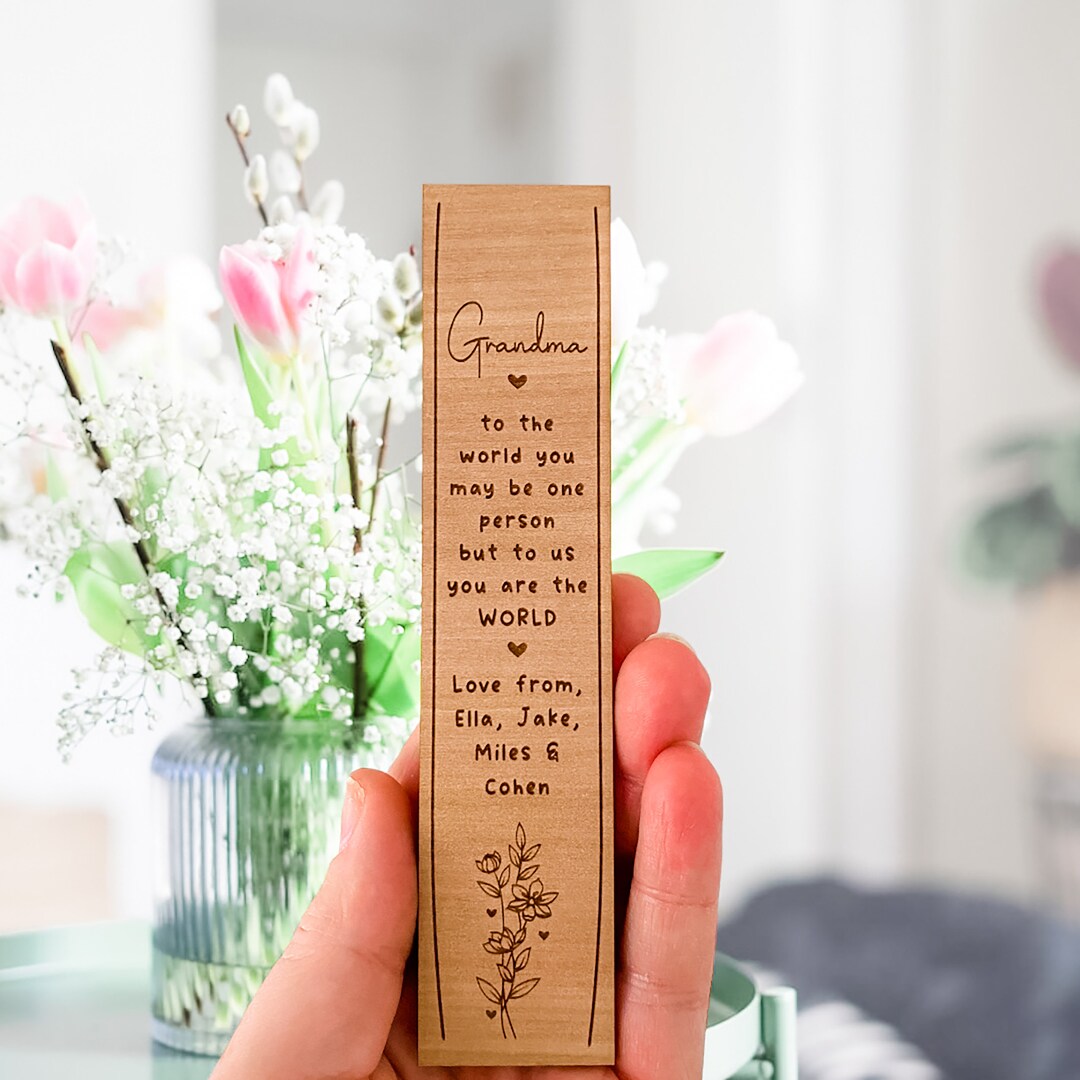 Grandma
to the
world you
may be one
person
but to us
you are the
WORLD
Love from,
Ella, Jake,
Miles &
Cohen